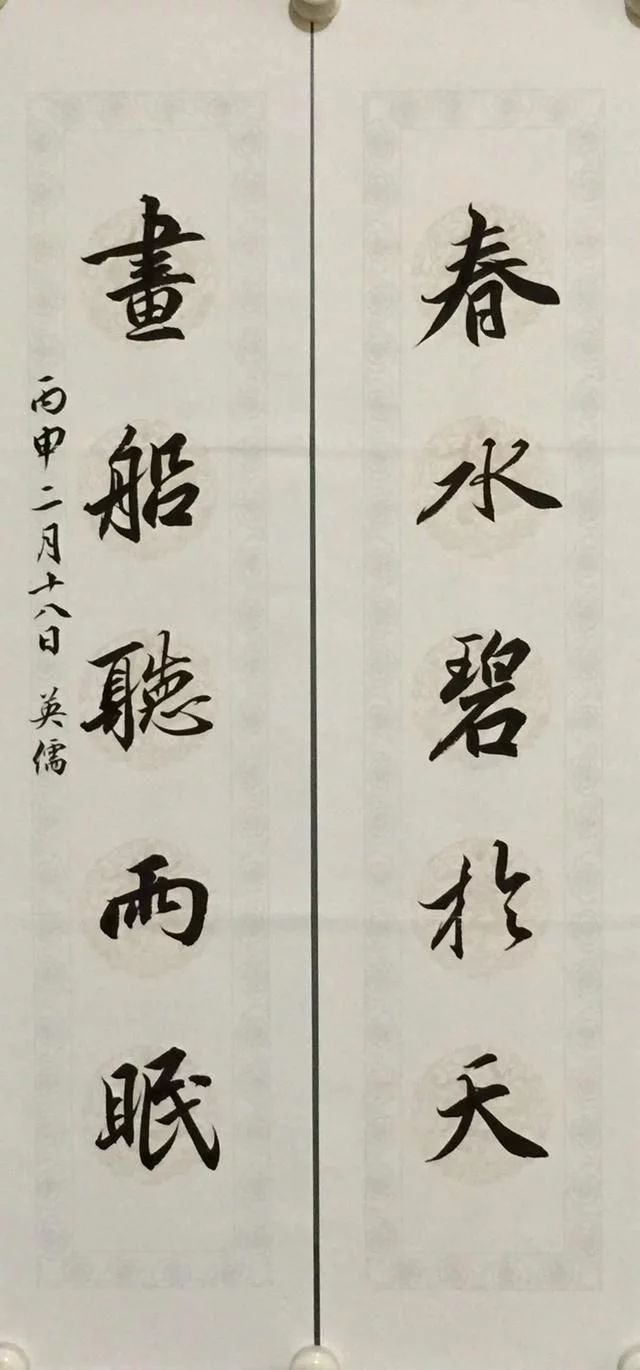 春水碧於天
畫船聽雨眠
丙申二月十八日 英儒